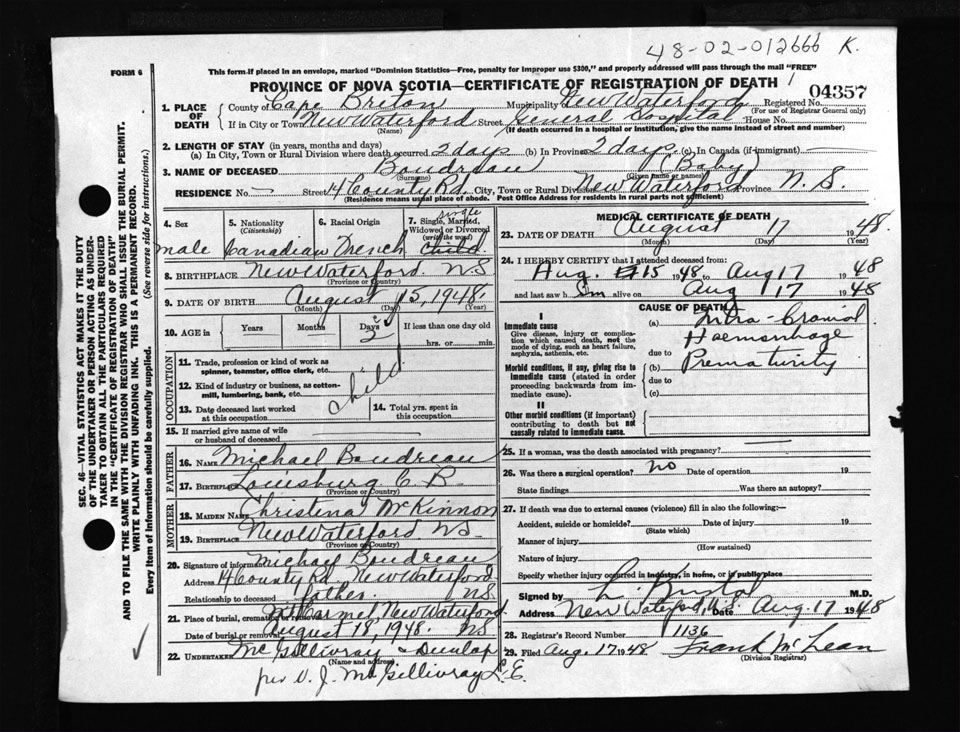 48-02-012666 K.
FORM 6
This form if placed in an envelope, marked "Dominion Statistics—Free, penalty for improper use $300," and properly addressed will pass through the mail "FREE"
PROVINCE OF NOVA SCOTIA—CERTIFICATE OF REGISTRATION OF DEATH
04357
1. PLACE OF DEATH
County of Cape Breton Municipality New Waterford Registered No.
(For use of Registrar General only)
If in City or Town New Waterford Street General Hospital House No.
(Name) (If death occurred in a hospital or institution, give the name instead of street and number)
2. LENGTH OF STAY (in years, months and days)
(a) In City, Town or Rural Division where death occurred 2 days (b) In Province 2 days (c) In Canada (if immigrant)
3. NAME OF DECEASED Boudreau (Baby)
(Surname) (Given name or names)
RESIDENCE No. — Street 14 County Rd. City, Town or Rural Division New Waterford Province N. S.
(Residence means usual place of abode. Post Office Address for residents in rural parts not sufficient)
4. Sex
male
5. Nationality
(Citizenship)
Canadian
6. Racial Origin
French
7. Single, Married, Widowed or Divorced
(write the word)
single
child
8. BIRTHPLACE New Waterford. N.S
(Province or Country)
9. DATE OF BIRTH August 15, 1948.
(Month) (Day) (Year)
10. AGE in Years Months Days If less than one day old
2 hrs. or min.
OCCUPATION
11. Trade, profession or kind of work as spinner, teamster, office clerk, etc.
12. Kind of industry or business, as cotton-mill, lumbering, bank, etc.
child
13. Date deceased last worked at this occupation
14. Total yrs. spent in this occupation
15. If married give name of wife or husband of deceased
FATHER
16. NAME Michael Boudreau
17. BIRTHPLACE Louisburg C. B.
(Province or Country)
MOTHER
18. MAIDEN NAME Christena McKinnon
19. BIRTHPLACE New Waterford NS
(Province or Country)
20. Signature of informant Michael Boudreau
Address 14 County Rd. New Waterford
N.S.
Relationship to deceased father.
21. Place of burial, cremation or removal Mt Carmel New Waterford
Date of burial or removal August 18, 1948. NS
22. UNDERTAKER McGillivray & Dunlap
(Name and address)
per V. J. McGillivray L. E.
MEDICAL CERTIFICATE OF DEATH
23. DATE OF DEATH August 17 1948
(Month) (Day) (Year)
24. I HEREBY CERTIFY that I attended deceased from:
Aug. 15 1948 to Aug 17 1948
and last saw him alive on Aug 17 1948
CAUSE OF DEATH
I
Immediate cause
Give disease, injury or complication which caused death, not the mode of dying, such as heart failure, asphyxia, asthenia, etc.
(a) Intra-Cranial
Haemorrhage
due to
Morbid conditions, if any, giving rise to immediate cause (stated in order proceeding backwards from immediate cause).
(b) Prematurity
due to
(c)
II
Other morbid conditions (if important) contributing to death but not causally related to immediate cause.
25. If a woman, was the death associated with pregnancy?
26. Was there a surgical operation? no Date of operation 19
State findings Was there an autopsy?
27. If death was due to external causes (violence) fill in also the following:—
Accident, suicide or homicide? Date of injury 19
(State which)
Manner of injury
(How sustained)
Nature of injury
Specify whether injury occurred in industry, in home, or in public place
Signed by M.D.
Address New Waterford, N.S. Date Aug. 17 1948
28. Registrar's Record Number 1136
29. Filed Aug. 17 1948 Frank McLean
(Division Registrar)
SEC. 46—VITAL STATISTICS ACT MAKES IT THE DUTY
OF THE UNDERTAKER OR PERSON ACTING AS UNDER-
TAKER TO OBTAIN ALL THE PARTICULARS REQUIRED
IN THE "CERTIFICATE OF REGISTRATION OF DEATH"
AND TO FILE THE SAME WITH THE DIVISION REGISTRAR WHO SHALL ISSUE THE BURIAL PERMIT.
WRITE PLAINLY WITH UNFADING INK. THIS IS A PERMANENT RECORD.
Every item of information should be carefully supplied. (See reverse side for instructions.)